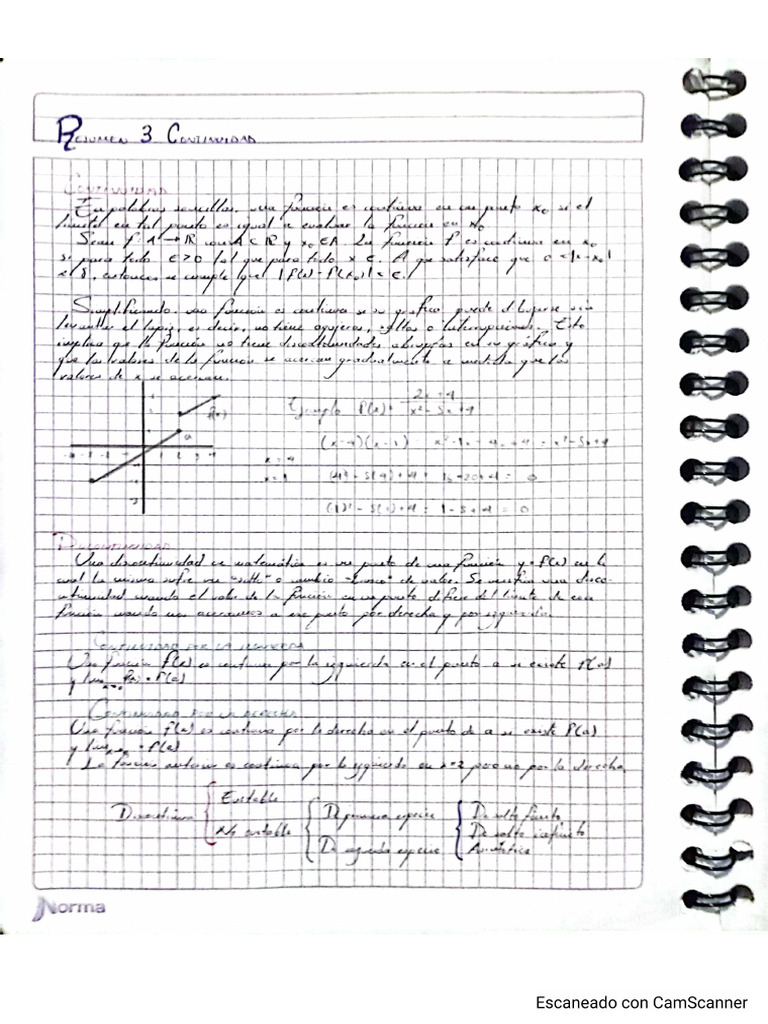 Resumen 3 Continuidad
Continuidad
En palabras sencillas, una función es continua en un punto x₀ si el
límite en tal punto es igual a evaluar la función en x₀
Sean f A → R con A ⊂ R y x₀ ∈ A La función f es continua en x₀
si para todo ε>0 tal que para todo x ∈ A que satisface que 0<|x-x₀|
< δ, entonces se cumple que |f(x)-f(x₀)|<ε.
Simplificando, una función es continua si su gráfico puede dibujarse sin
levantar el lápiz, es decir, no tiene agujeros, saltos o interrupciones. Esto
implica que la función no tiene discontinuidades abruptas en su gráfico y
que los valores de la función se acercan gradualmente a medida que los
valores de x se acercan.
f(x)
a
Ejemplo f(x)= 2x+4
x²-5x+4
(x-4)(x-1) x²-1x-4x+4 = x²-5x+4
x=4
(4)²-5(4)+4 = 16-20+4 = 0
x=1
(1)²-5(1)+4 = 1-5+4 = 0
Discontinuidad
Una discontinuidad en matemática es un punto de una función y=f(x) en la
cual la misma sufre un "salto" o cambio de valor. Se verifica una disco-
ntinuidad cuando el valor de la función en un punto difiere del límite de esa
función cuando nos acercamos a ese punto por derecha y por izquierda.
Continuidad por la izquierda
Una función f(x) es continua por la izquierda en el punto a si existe f(a)
y lim f(x) = f(a)
Continuidad por la derecha
Una función f(x) es continua por la derecha en el punto de a si existe f(a)
y lim = f(a)
La función anterior es continua por la izquierda en x=2 pero no por la derecha.
Discontinua
Evitable
No evitable
De primera especie
De segunda especie
De salto finito
De salto infinito
Asintótica
Norma
Escaneado con CamScanner